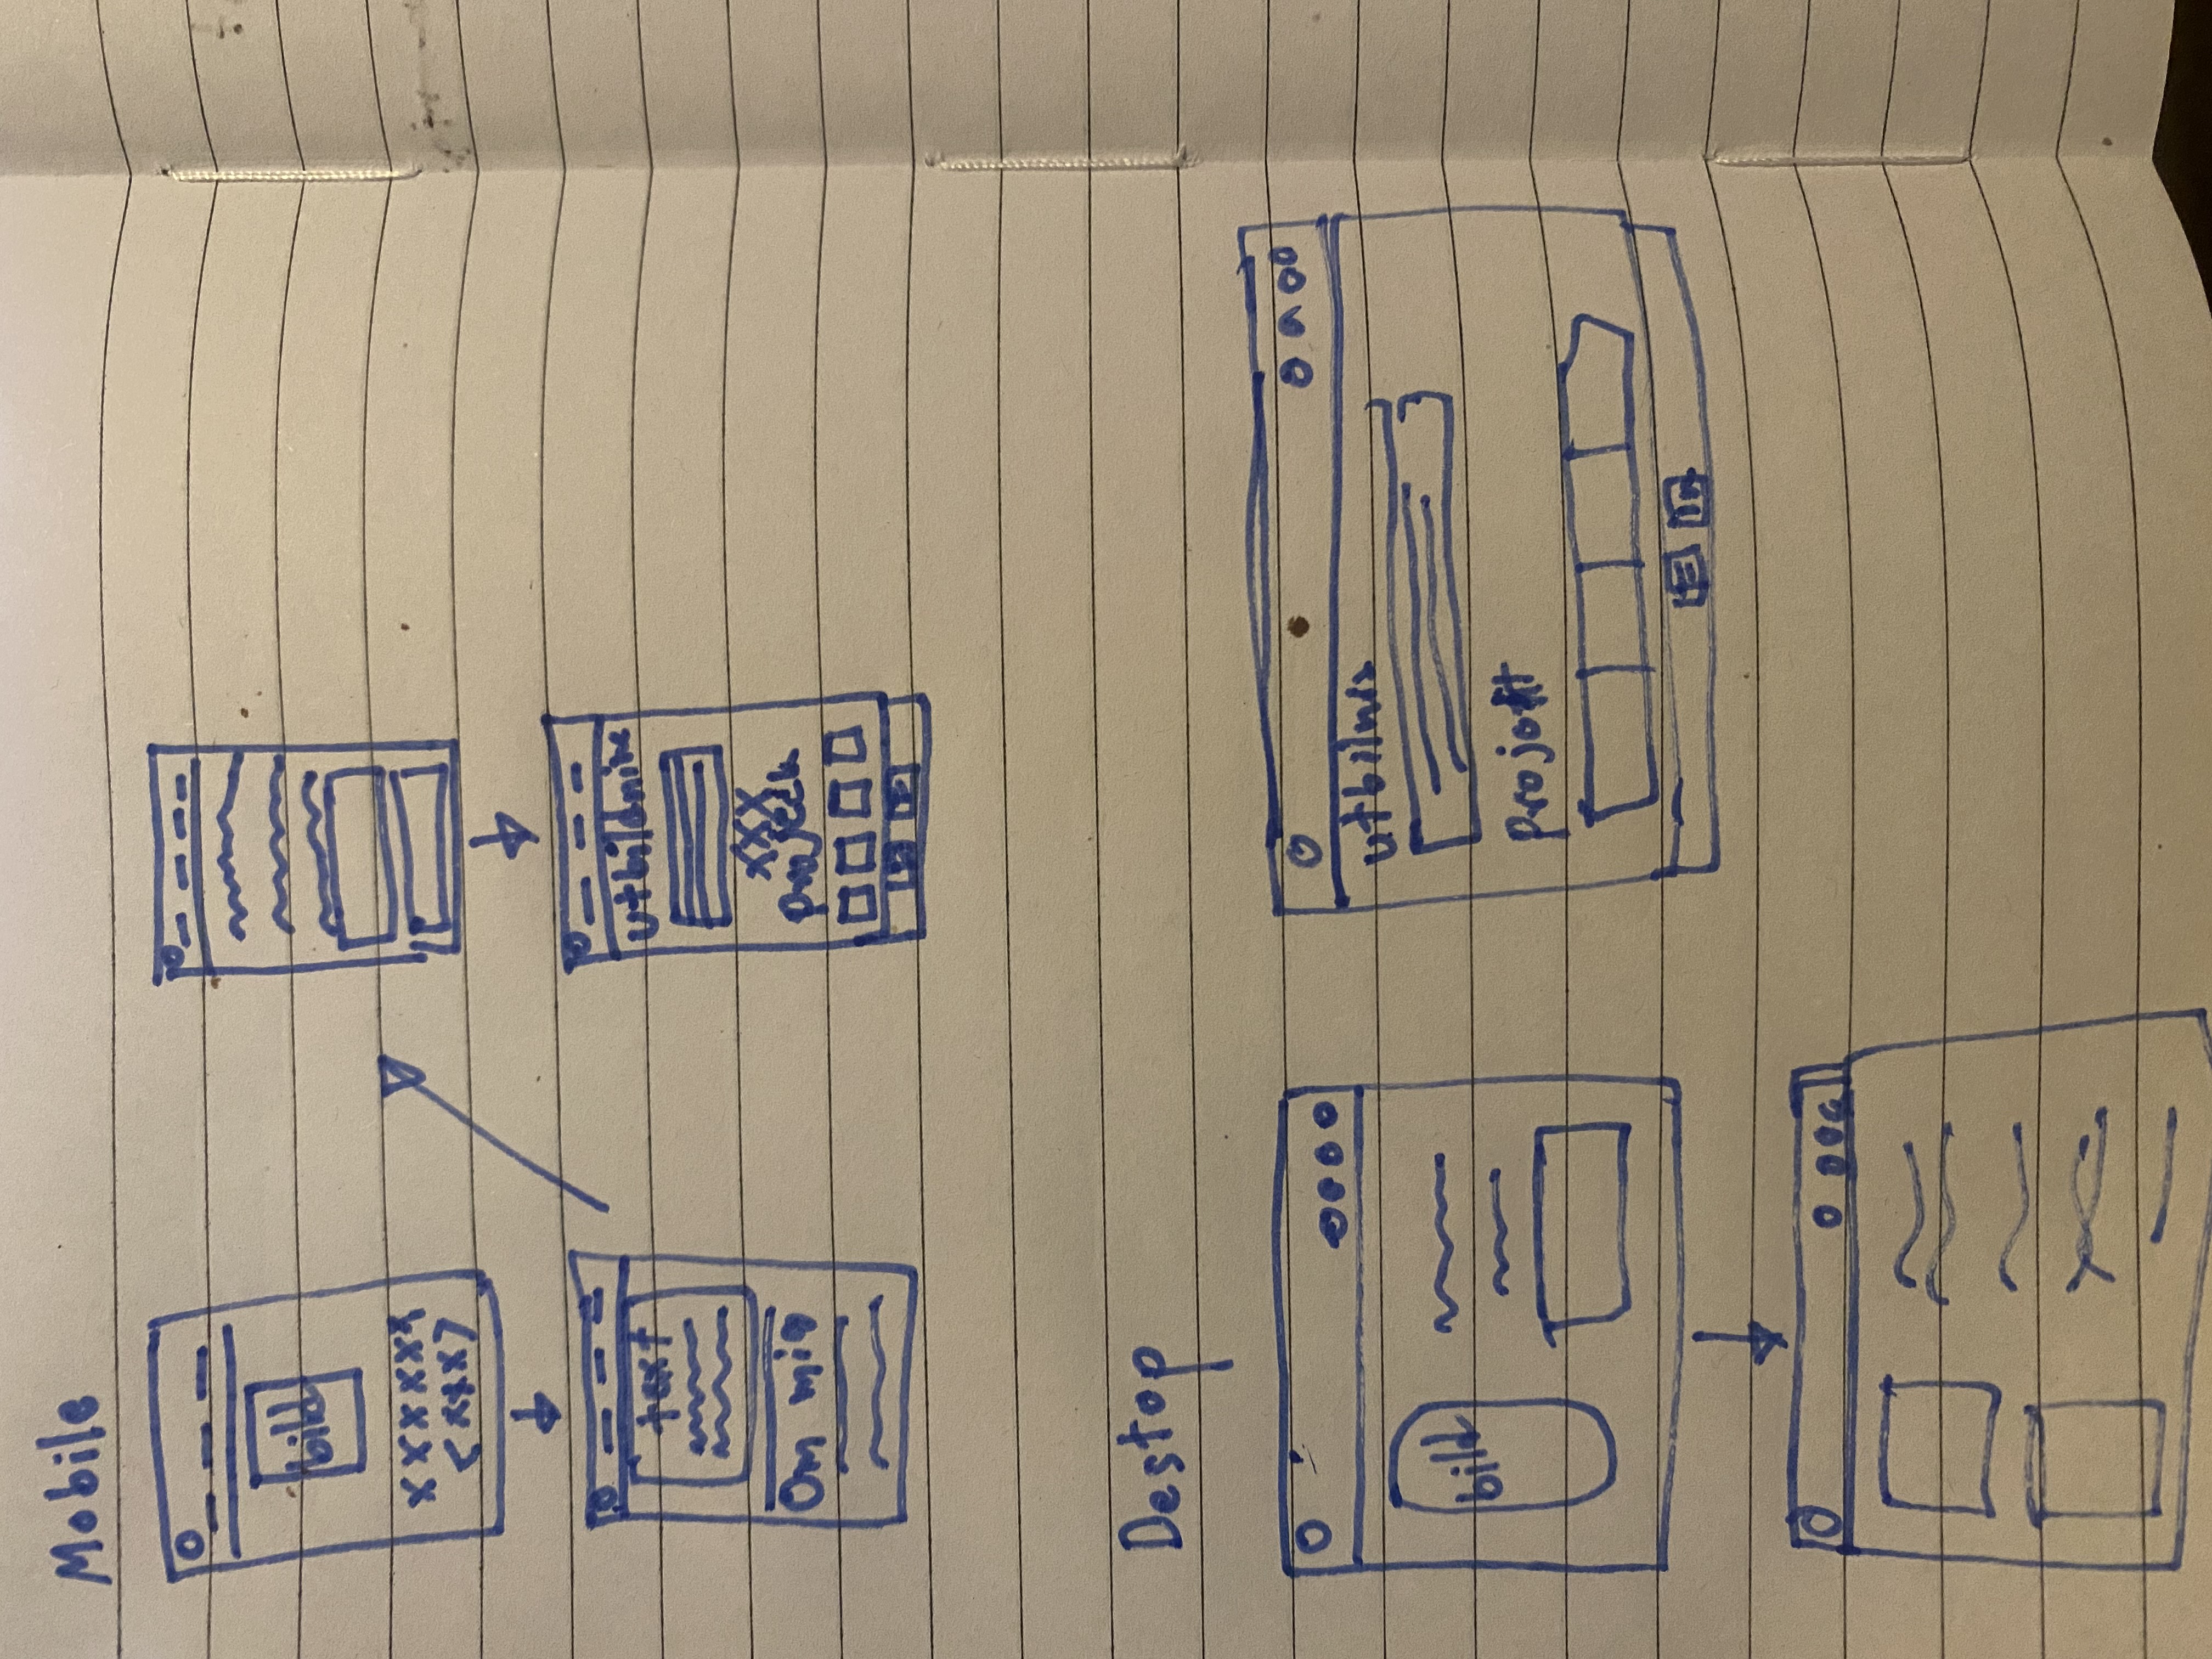 Mobile
bild
xxxxxx
<xxx>
text
Om mig
utbildnine
xxx
projeck
Destop
bild
utbilnis
E In